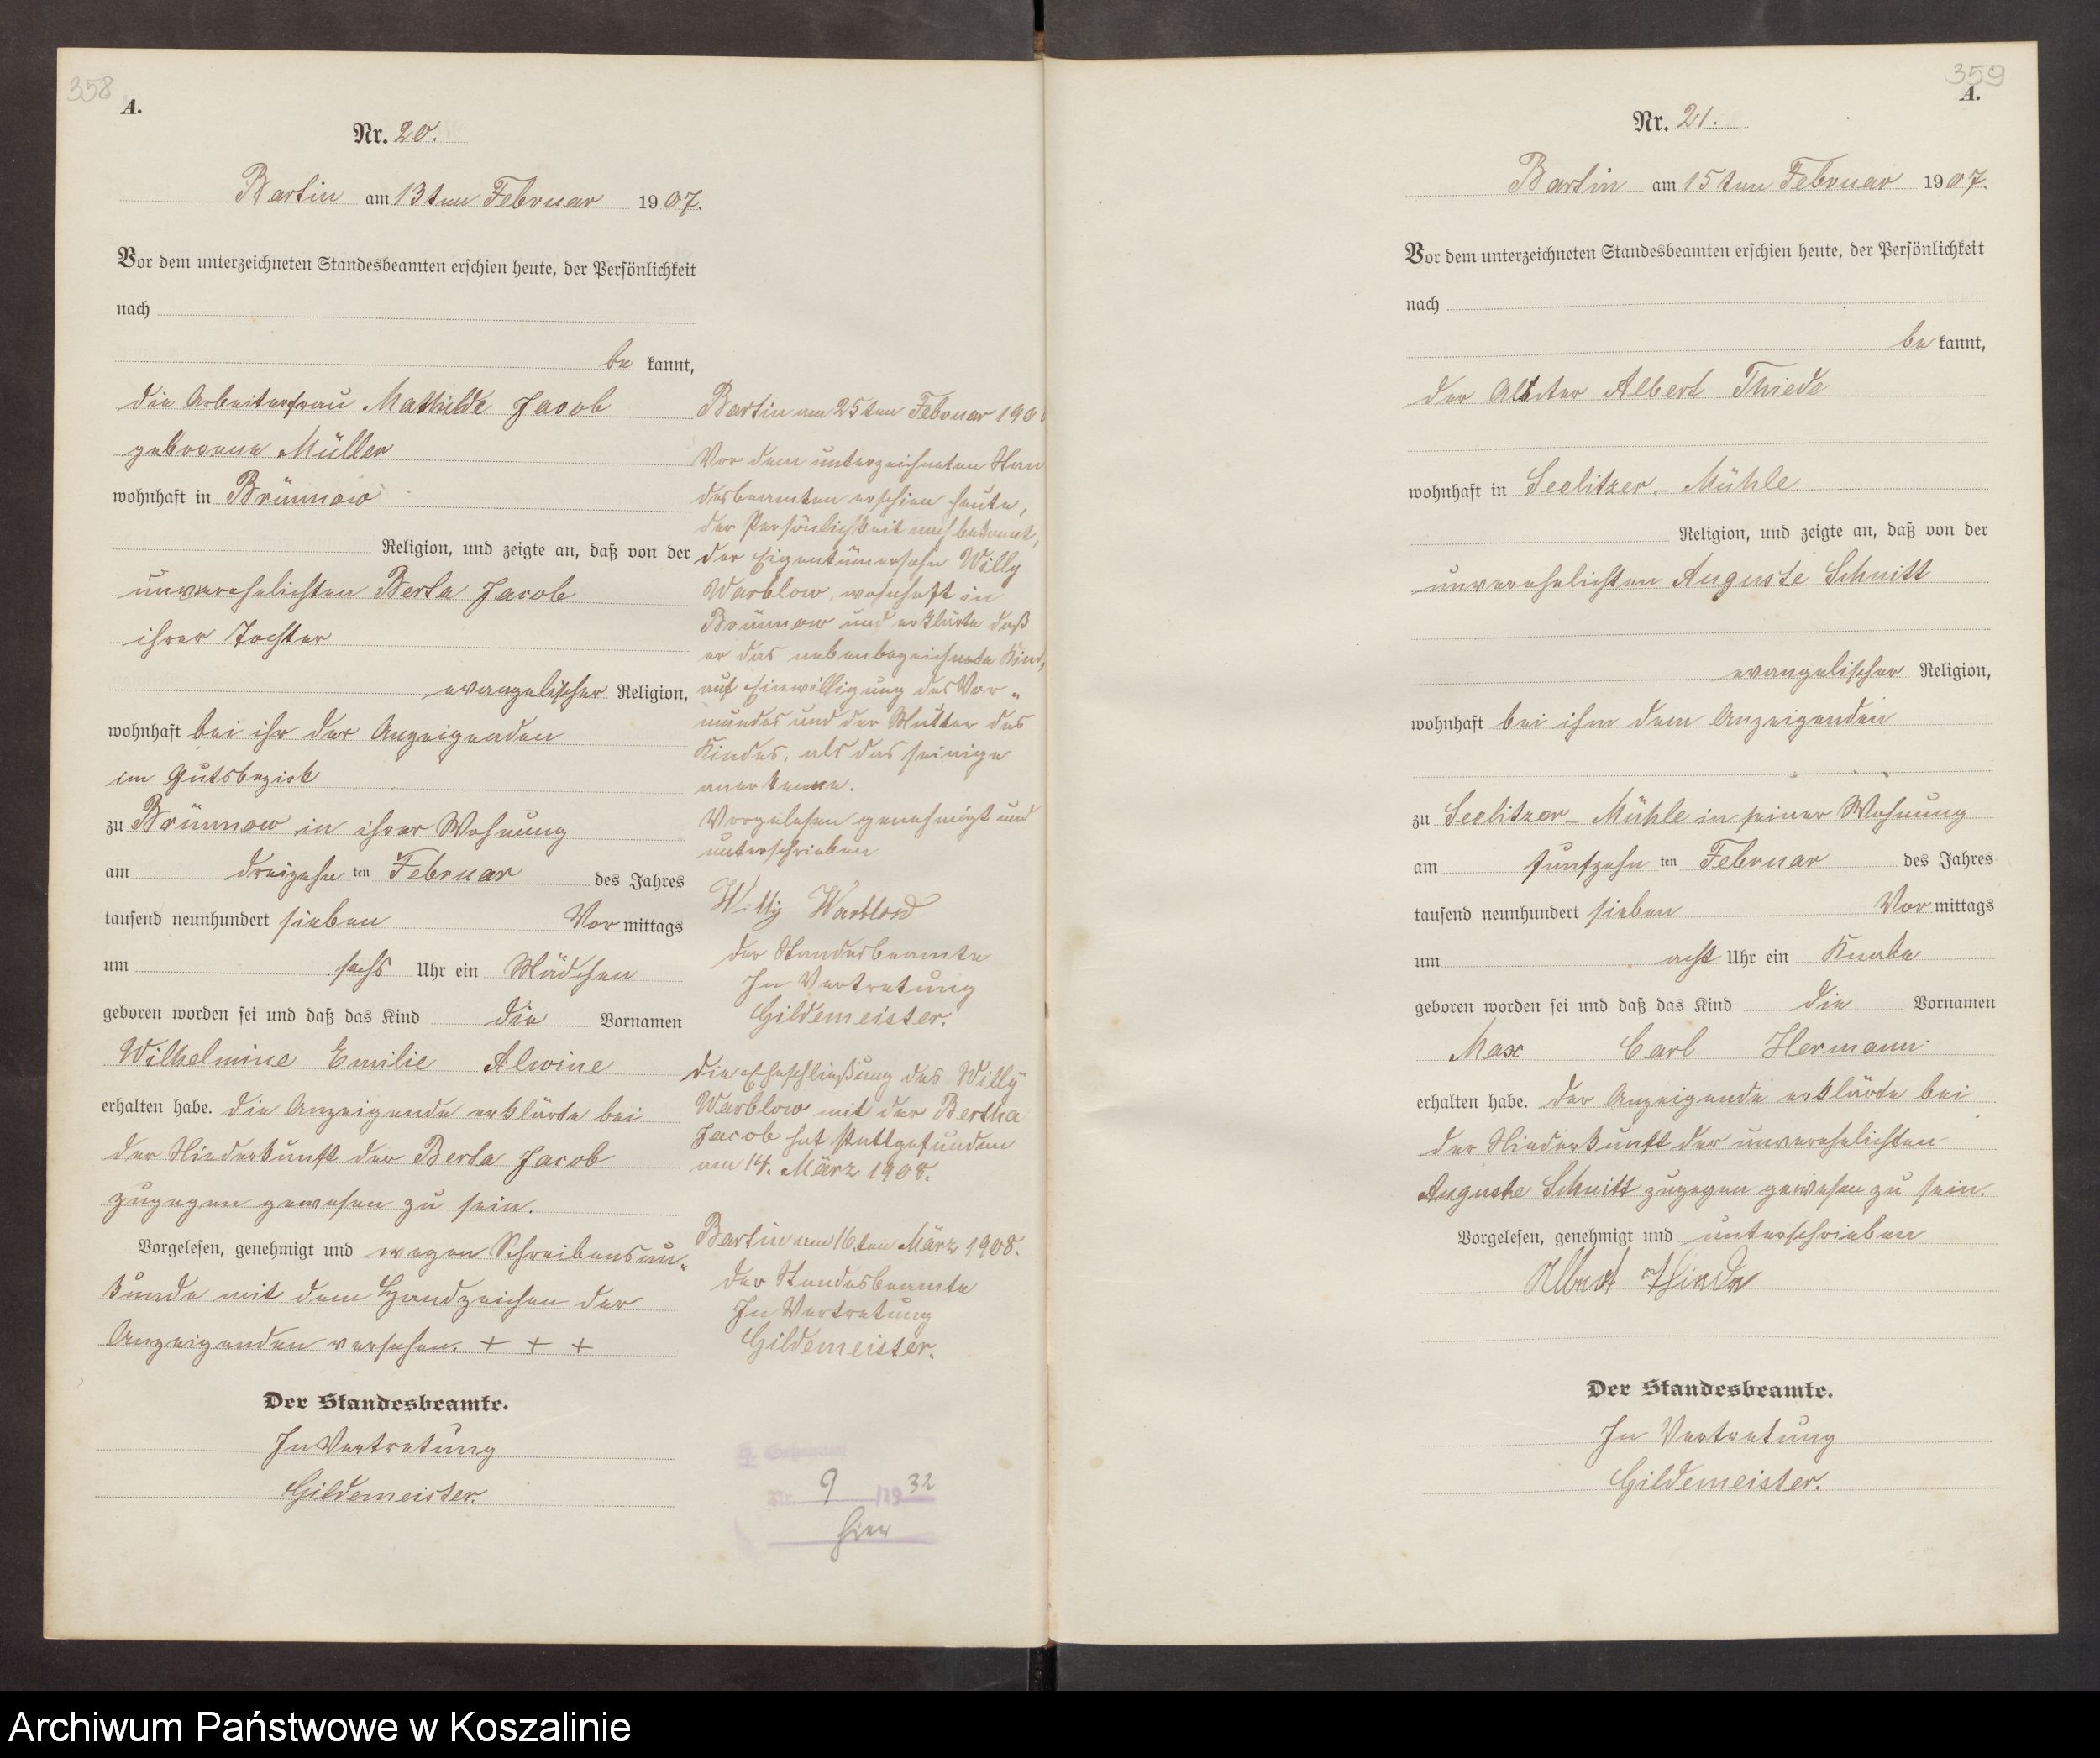 358
A.
Nr. 20.
Bartin am 13ten Februar 1907.
Vor dem unterzeichneten Standesbeamten erschien heute, der Persönlichkeit
nach
be kannt,
die Arbeiterfrau Mathilde Jacob
geborene Müller
wohnhaft in Brünnow
Religion, und zeigte an, daß von der
unverehelichten Berta Jacob
ihrer Tochter
evangelischer Religion,
wohnhaft bei ihr der Anzeigenden
im Gutsbezirk
zu Brünnow in ihrer Wohnung
am dreizehn ten Februar des Jahres
tausend neunhundert sieben Vor mittags
um sechs Uhr ein Mädchen
geboren worden sei und daß das Kind die Vornamen
Wilhelmine Emilie Alwine
erhalten habe. Die Anzeigende erklärte bei
der Niederkunft der Berta Jacob
zugegen gewesen zu sein.
Vorgelesen, genehmigt und wegen Schreibensun„
kunde mit dem Handzeichen der
Anzeigenden versehen. + + +
Der Standesbeamte.
In Vertretung
Gildemeister.
Bartin am 25ten Februar 190
Vor dem unterzeichneten Stan
desbeamten erschien heute,
der Persönlichkeit nach bekannt,
der Eigentümersohn Willy
Warblow, wohnhaft in
Brünnow und erklärte daß
er das nebenbezeichnete Kind,
auf Einwilligung des Vor„
mundes und der Mutter des
Kindes, als das seinige
anerkenne.
Vorgelesen genehmigt und
unterschrieben
Willy Warblow
Der Standesbeamte
In Vertretung
Gildemeister.
Die Eheschließung des Willy
Warblow mit der Bertha
Jacob hat stattgefunden
am 14. März 1908.
Bartin am 16ten März 1908.
Der Standesbeamte
In Vertretung
Gildemeister.
Nr. 9 /1932
hier
359
A.
Nr. 21.
Bartin am 15ten Februar 1907.
Vor dem unterzeichneten Standesbeamten erschien heute, der Persönlichkeit
nach
be kannt,
der Albert Thiede
wohnhaft in Seelitzer-Mühle.
Religion, und zeigte an, daß von der
unverehelichten Auguste Schnitt
evangelischer Religion,
wohnhaft bei ihm dem Anzeigenden
zu Seelitzer-Mühle in seiner Wohnung
am funfzehn ten Februar des Jahres
tausend neunhundert sieben Vor mittags
um acht Uhr ein Knabe
geboren worden sei und daß das Kind die Vornamen
Max Carl Hermann
erhalten habe. Der Anzeigende erklärte bei
der Niederkunft der unverehelichten
Auguste Schnitt zugegen gewesen zu sein.
Vorgelesen, genehmigt und unterschrieben
Albert Thiede
Der Standesbeamte.
In Vertretung
Gildemeister.
Archiwum Państwowe w Koszalinie